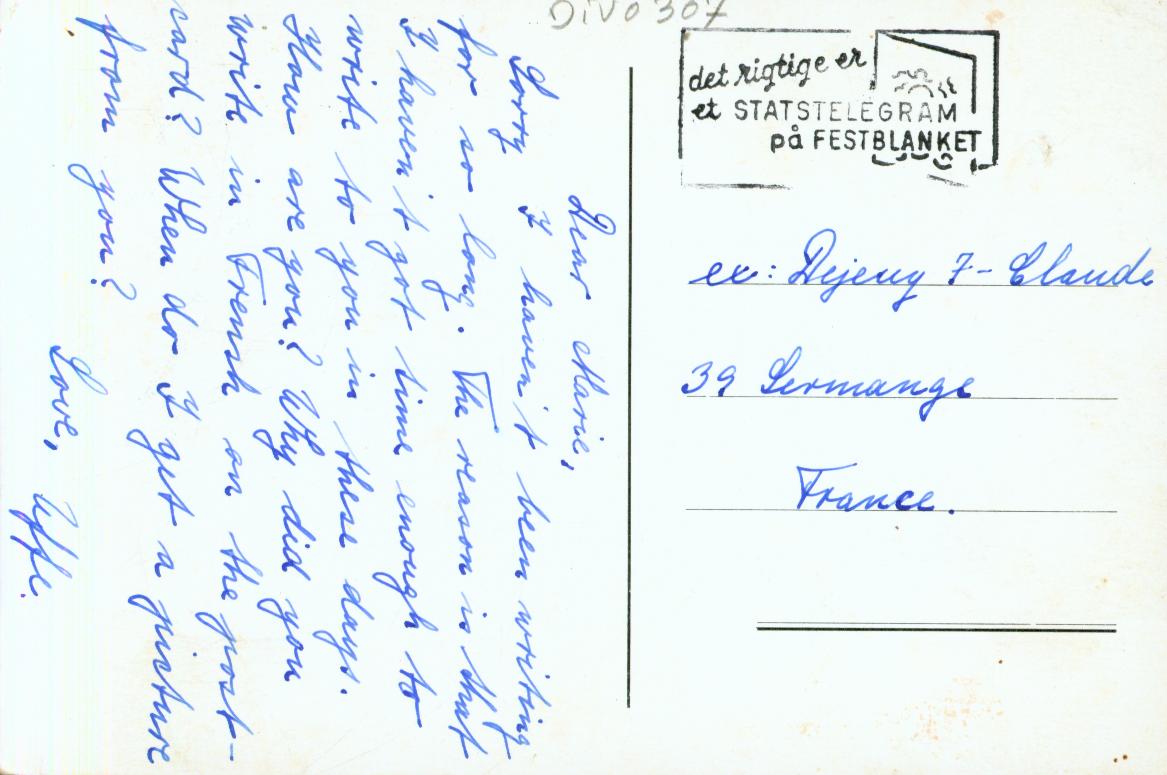 DIVO307
Dear Marie,
Sorry I haven't been writing
for so long. The reason is that
I haven't got time enough to
write to you in these days.
How are you? Why did you
write in Frensh on the post-
card? When do I get a picture
from you?
Love, Uffe.
det rigtige er
et STATSTELEGRAM
på FESTBLANKET
ex: Dejeuy 7- Claude
39 Sermange
France.